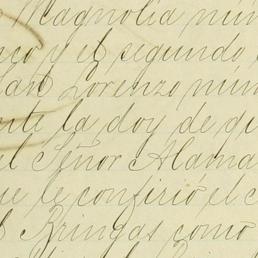 Magnolia núm
co y el segundo
San Lorenzo núm
te la doy de
el Señor Alama
ue le confirió el
Bringas como